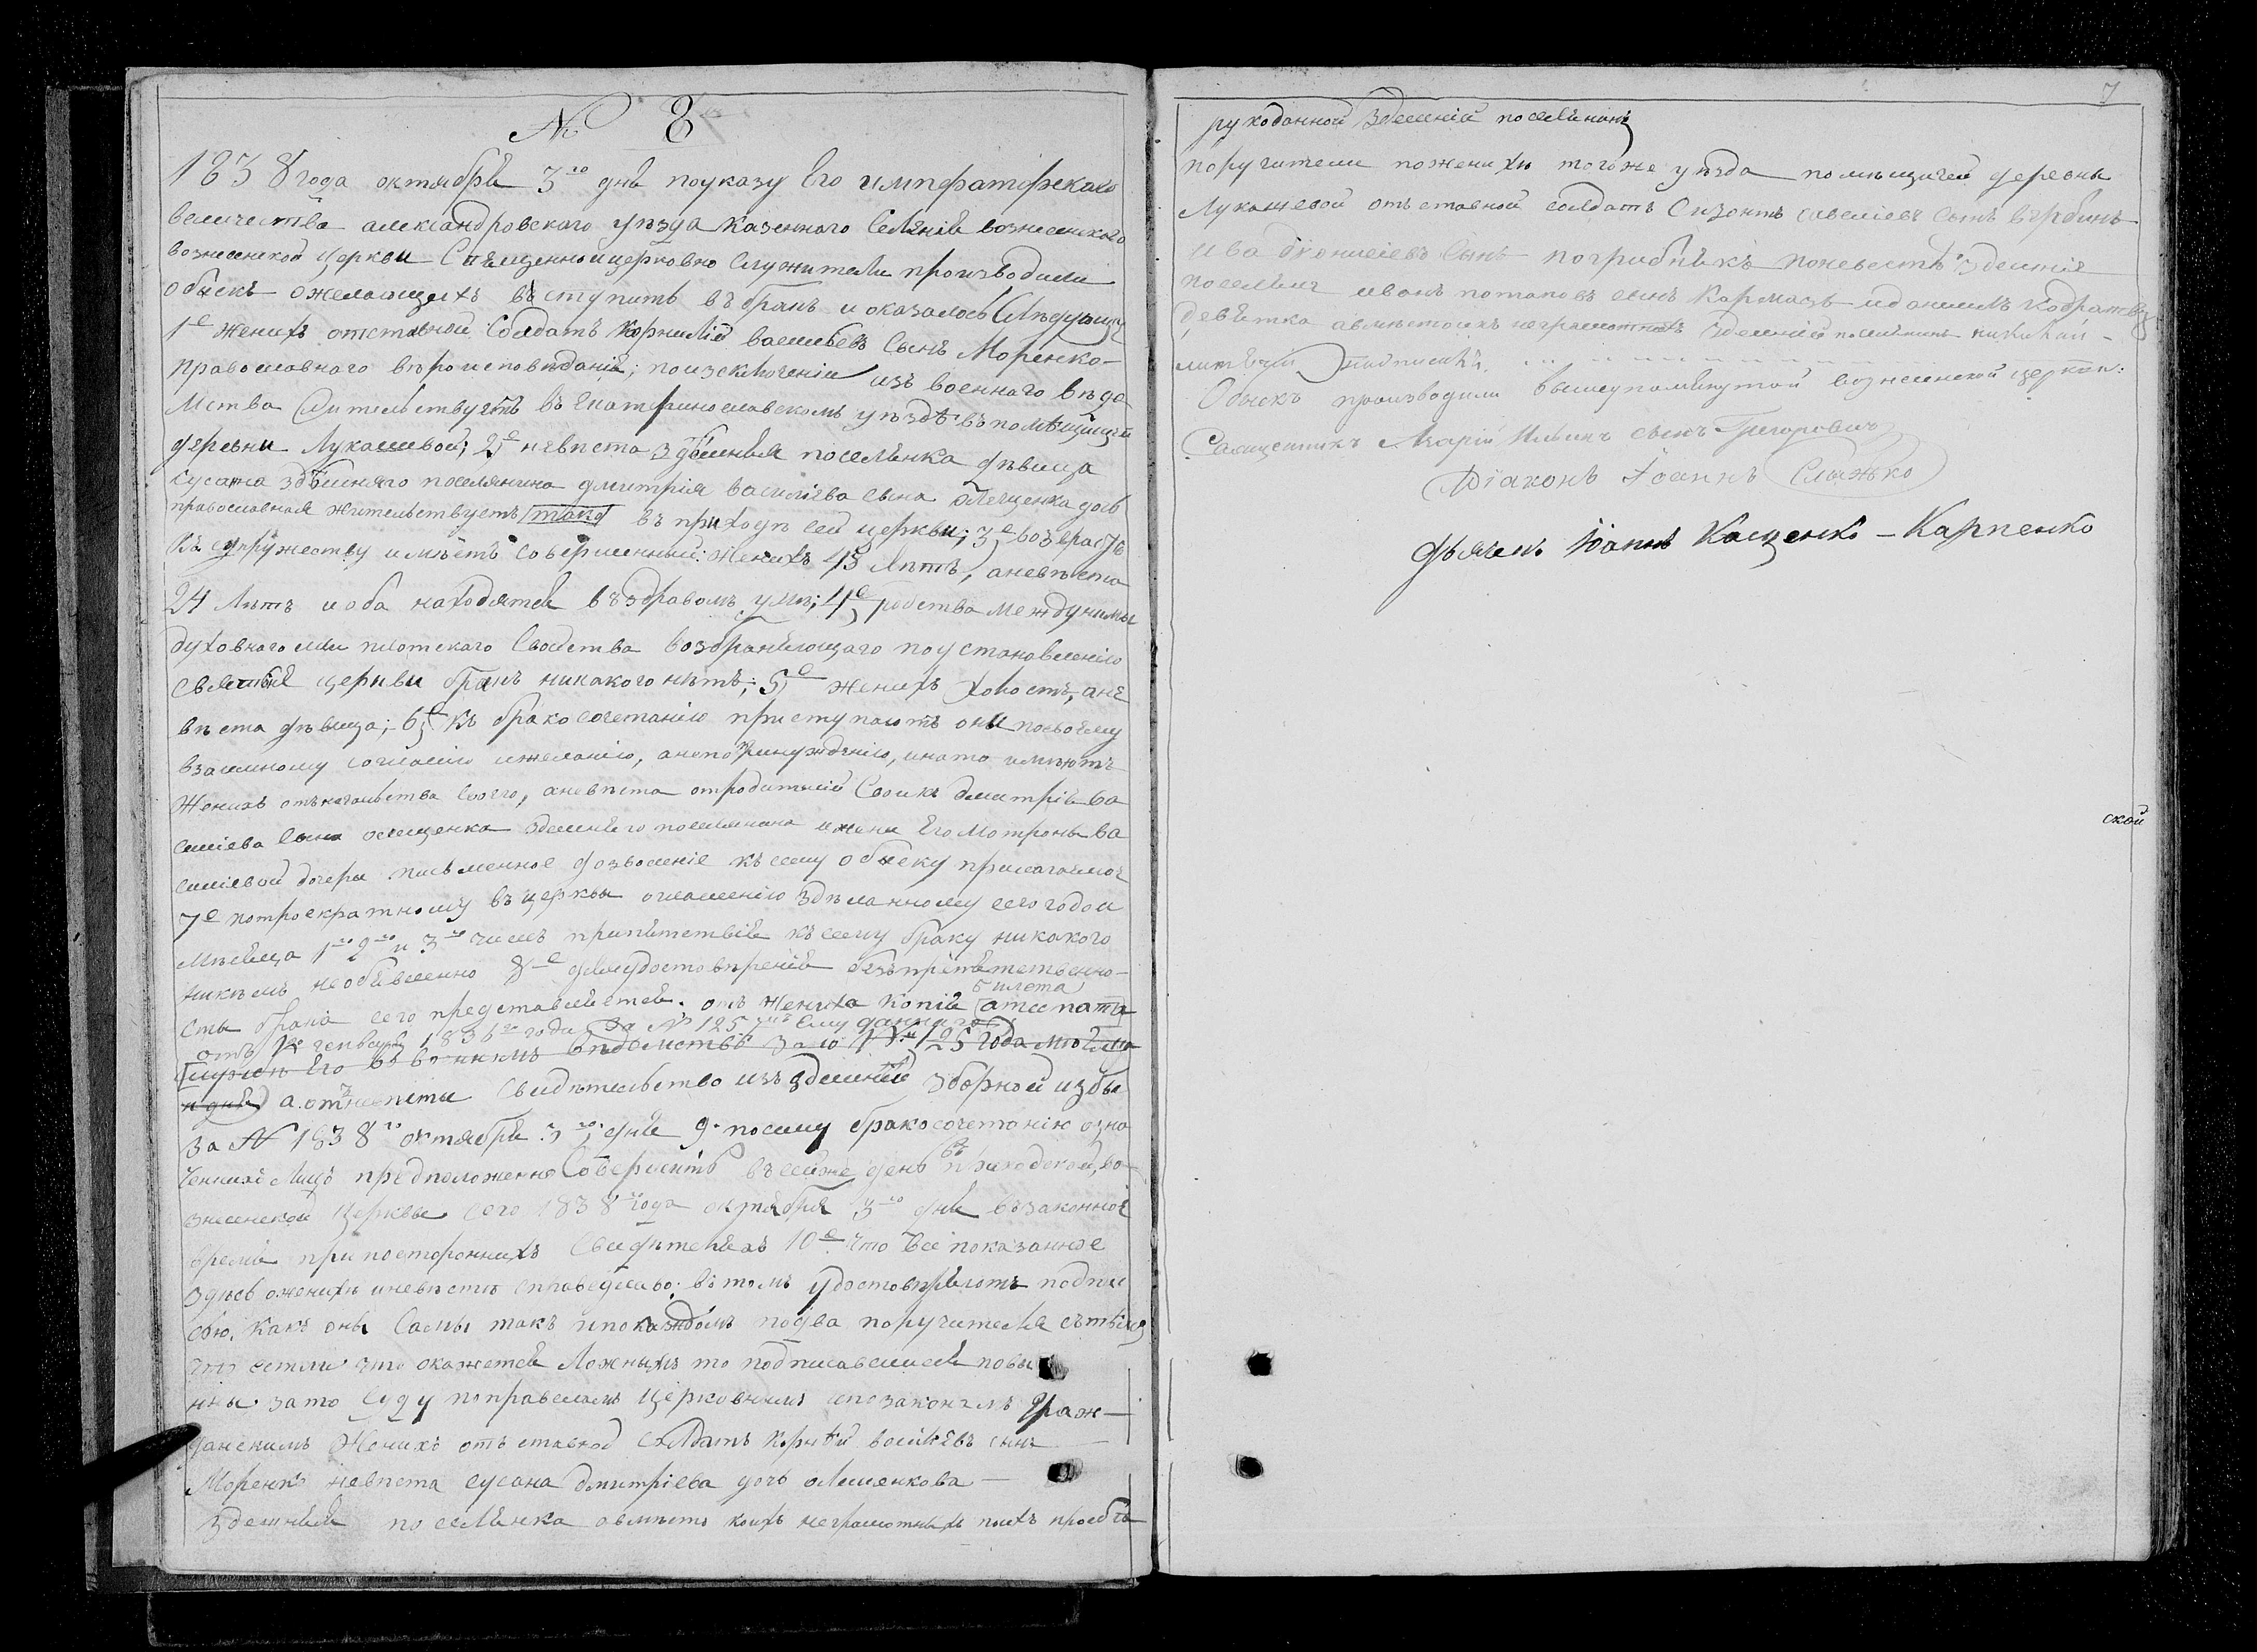 № 8
1838 года октября 3го дня поуказу Его императорскаго
величества александровского уезда казенного селения вознесенского
вознесенской церкви Священноицерковно служители производили
обыскъ ожелающихъ вступить въ бракъ и оказалось Следующее
1е женихъ отставной Солдатъ Корнилий васильевъ Сынъ Моренко-
православного вероисповедания; поизключении изъ военного ведо
мства жительствуетъ въ екатеринославскомъ уездѣ въ помещицей
деревни Лукашевой; 2е невѣста здешняя поселянка дѣвица
Сусана здешняго поселянина дмитрія василіева сына Олещенка дочь
православная жительствуетъ въ приходѣ сей церкви; 3е возрастъ
къ супружеству имѣетъ совершенный: женихъ 43 лѣтъ, аневѣста
24 лѣтъ и оба находятся въздравомъ уме; 4е родства междуними
духовного или плотского свойства возбраняющаго поустановлению
святыя церкви бракъ никакого нѣтъ; 5е женихъ холостъ, ане
вѣста дѣвица; 6е къ бракосочетанию приступаютъ они посвоему
взаимному согласию ижеланию, анепопринуждению, инато имѣютъ
Женихъ отъначальства своего, аневѣста отродителей Своихъ дмитрия ва
силиева сына олещенка здешнего поселянина ижены Его Мотроны ва
силиевой дочери письменное дозволение ксему обыску прилагаемое
7е потроекратному въцеркви оглашению зделанному сего года
месяца 1го 2го и 3го числъ препятствия ксему браку никакого
никемъ необявленно 8е дляудостоверения безпрепятственно-
билета
сти брака сего представляется. отъ жениха копия атестата
отъ генваря 1836го года За № 125 ему данного
а отневѣсты Свидѣтельство изъздешней зборной избы
За № 1838го октября 3го дня 9. посему бракосочетание озна
ченныхъ Лицъ предположенно Совершить всейже день въ приходской, во
знесенской церкви сего 1838 года октября 3го дня взаконное
время припостороннихъ Свидѣтеляхъ 10е что все показанное
здѣсь оженихѣ иневѣстѣ справедливо; втомъ удостоверяютъ подпи
сью, какъ они Сами такъ ипокаждомъ подва поручителя стѣмъ
что естли что окажется Ложнымъ то подписавшиеся повин
ны зато Суду поправиламъ Церковнымъ ипозаконамъ граж-
данскимъ Женихъ отъставной солдатъ Корней васильевъ сынъ
Моренко невѣста сусана дмитріева дочь олешенкова -
здешняя поселянка авмѣсто коихъ неграмотныхъ поихъ прозбѣ
7
рукоданной Здешний поселянинъ
поручители поженихѣ тогоже уѣзда помещичей деревни
Лукашевой отъставной солдатъ Сизонтъ савелиевъ Сынъ вербинъ
ива дионисіевъ Сынъ погрибнякъ поневестѣ здешние
поселяне иванъ потаповъ сынъ Кармазъ иданиилъ Кодратовъ
девятка авместоихъ неграмотныхъ здешний поселянинъ
подписалъ
Обыскъ производили вышеупомянутой вознесенской церкви:
Священникъ Азарий Ильинъ сынъ Григоровичъ
Діаконъ Іоаннъ Слажько
Дьячекъ Іоаннъ Кащенко-Карпенко
ской